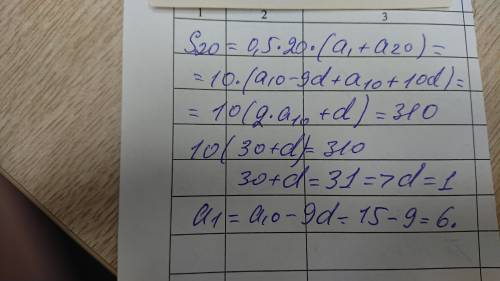 1 2 3
S20 = 0,5·20·(a1+a20) =
= 10·(a10-9d+a10+10d)=
= 10(2·a10+d)=310
10(30+d)=310
30+d=31=>d=1
a1=a10-9d=15-9=6.